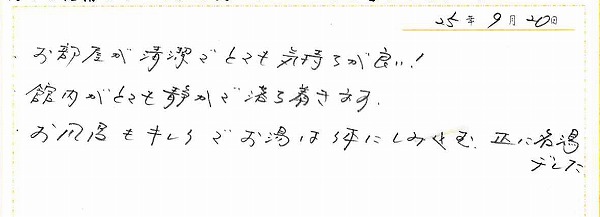 25年9月20日
・お部屋が清潔でとても気持ちが良い!
・館内がとても静かで落ち着きます。
・お風呂もキレイでお湯は体にしみ込む 正に名湯
でした